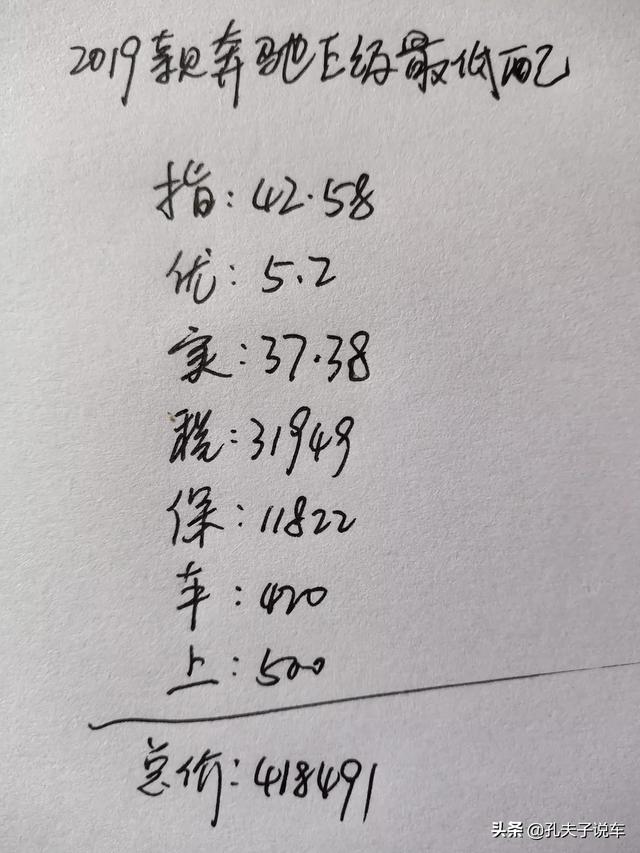 2019款奔驰E级最低配
指:42.58
优:5.2
实:37.38
税:31949
保:11822
车:420
上:500
总价:418491
头条@孔夫子说车